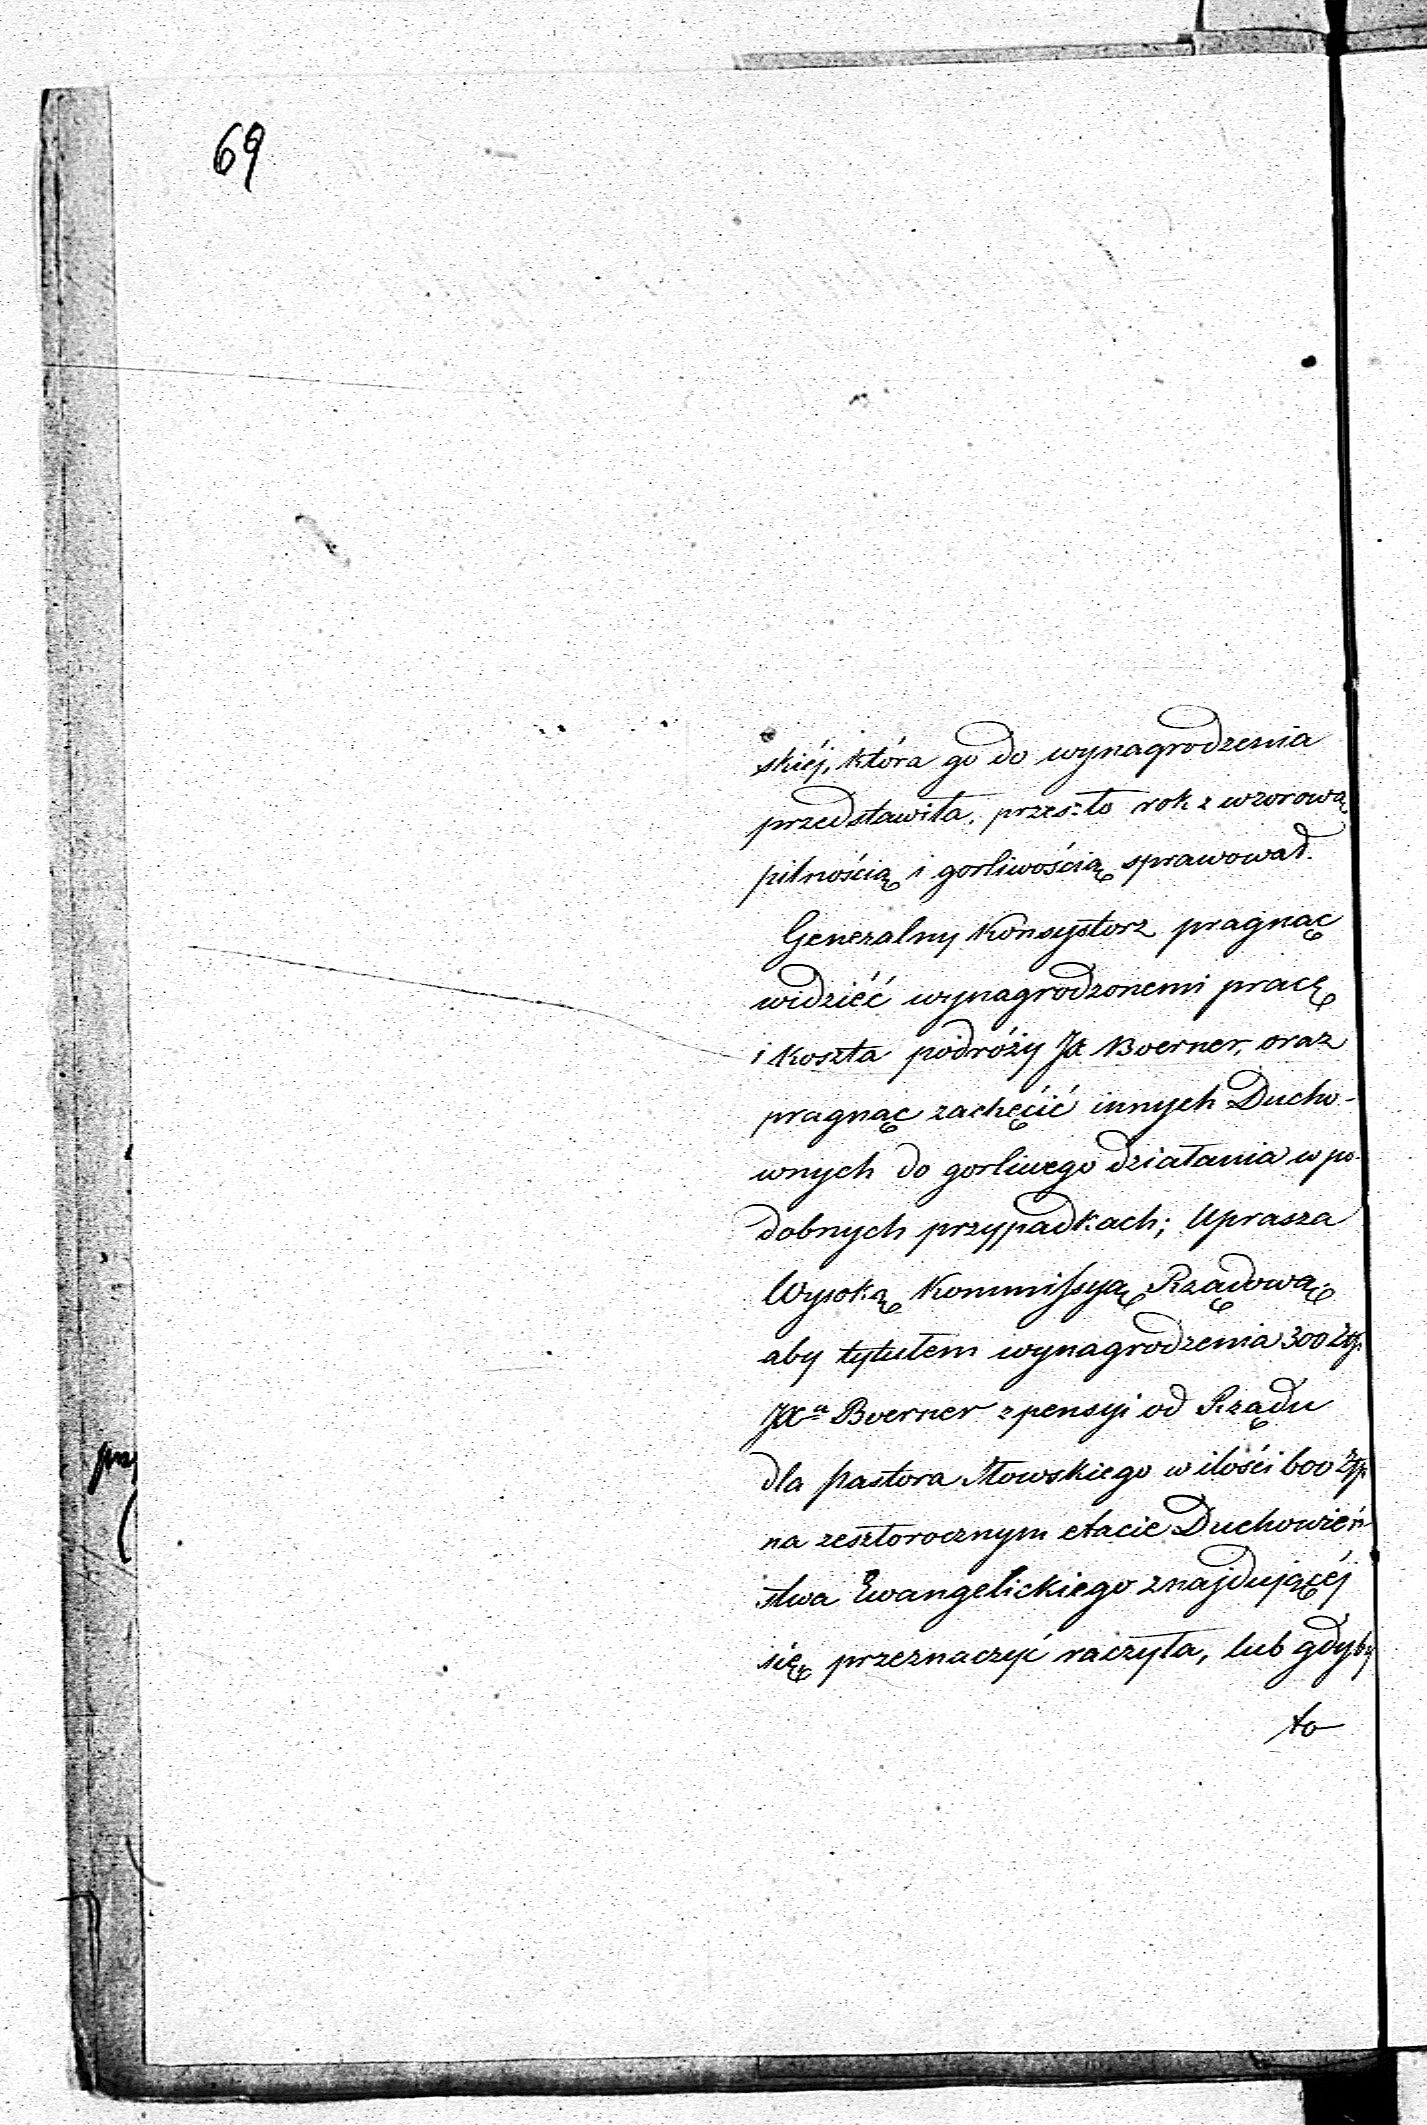 69
skiéj, która go do wynagrodzenia
przedstawiła, przeszło rok z wzorową
pilnością i gorliwością sprawował.
Generalny Konsystorz pragnąc
widzieć wynagrodzonemi pracę
i koszta podróży JX Boerner, oraz
pragnąc zachęcić innych Ducho-
wnych do gorliwego działania w po-
dobnych przypadkach; Uprasza
Wysoką Kommissyą Rządową,
aby tytułem wynagrodzenia 300 Złp.
JX Boerner z pensyi od Rządu
dla pastora Mowskiego w ilości 600 Złp.
na zeszłorocznym etacie Duchowień-
stwa Ewangelickiego znajdującéj
się, przeznaczyć raczyła, lub gdyby
to